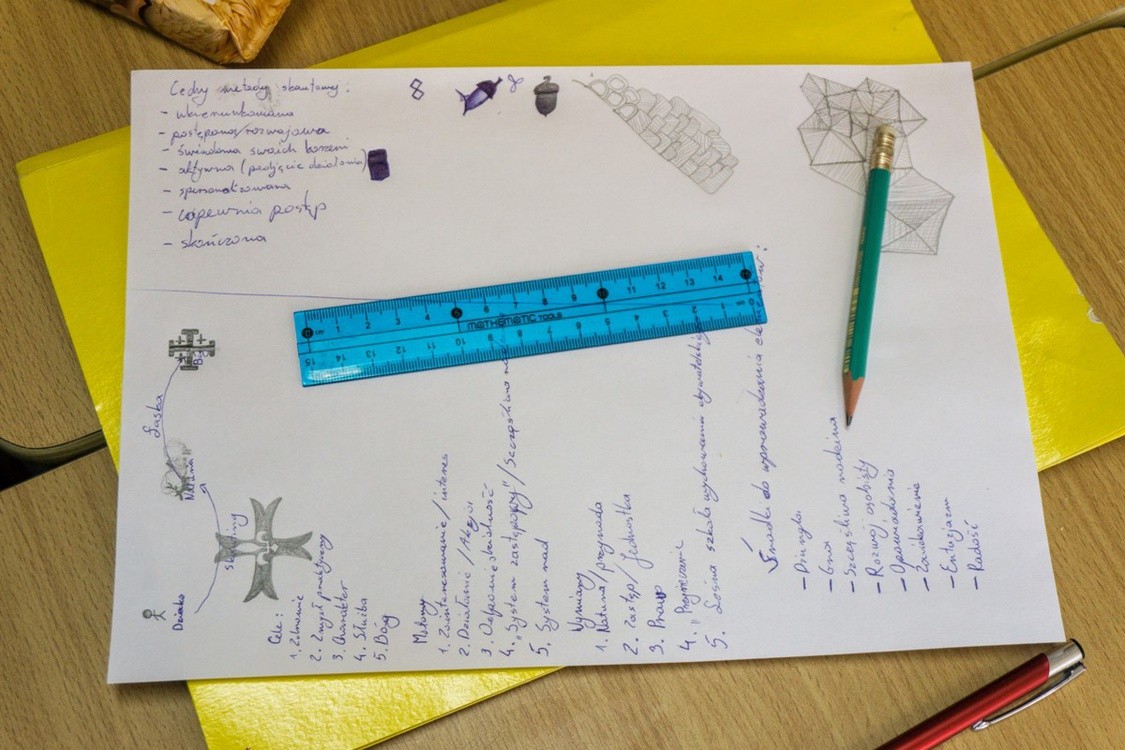 Cechy metody skautowej:
- ukierunkowana
- postępowa/rozwojowa
- świadoma swoich korzeni
- aktywna (podjęcie działania)
- spersonalizowana
- zapewnia postęp
- skończona
cm 1 2 3 4 6 7 8 9 11 12 13 14
MATHEMATIC TOOLS
15 14 13 12 10 9 8 7 5 4 3 2 0 cm
Łaska
Natura
skauting
Dziecko
Cele:
1. Zdrowie
2. Zmysł praktyczny
3. Charakter
4. Służba
5. Bóg
Metody
1. Zainteresowanie/interes
2. Działanie/Akcja
3. Odpowiedzialność
4. „System zastępowy”/Szczęśliwa
5. System rad
Wymiary
1. Natura/przyroda
2. Zastęp/Jednostka
3. Prawo
4. Przyrzeczenie
5. Leśna szkoła wychowania obywatelskiego
Środki do wprowadzenia
- Dżungla
- Gra
- Szczęśliwa rodzina
- Rozwój osobisty
- Opowiadania
- Entuzjazm
- Radość